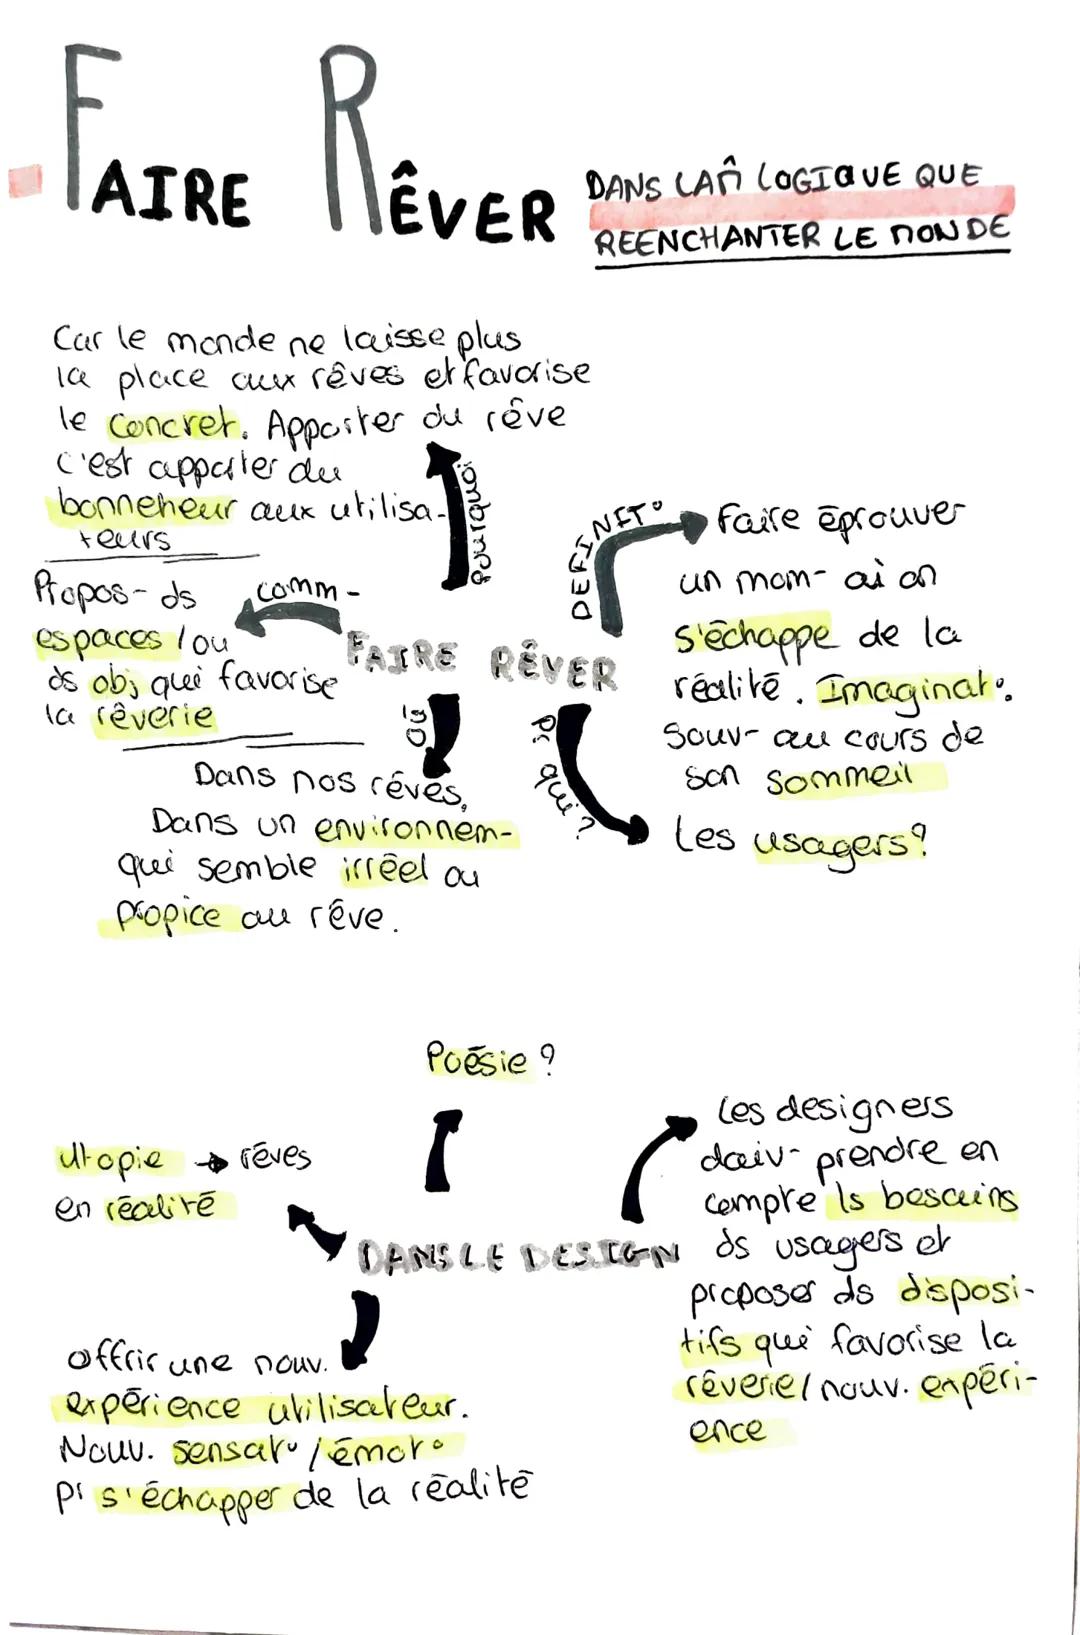 FAIRE RÊVER
DANS LA m̂ LOGIQUE QUE
REENCHANTER LE MONDE
Car le monde ne laisse plus
la place aux rêves et favorise
le concret. Apporter du rêve
c'est apporter du
bonneheur aux utilisa-
teurs
Pourquoi
Propos- ds
espaces / ou
ds obj qui favorise
la rêverie
comm-
DEFINIT°
Faire éprouver
un mom- où on
s'échappe de la
réalité. Imaginat°.
Souv- au cours de
son sommeil
FAIRE RÊVER
Où
Dans nos rêves,
Dans un environnem-
qui semble irréel ou
propice au rêve.
Pr qui ?
Les usagers ?
Poésie ?
Utopie → rêves
en réalité
Les designers
doiv- prendre en
compte ls besoins
ds usagers et
proposer ds disposi-
tifs qui favorise la
rêverie / nouv. expéri-
ence
DANS LE DESIGN
offrir une nouv.
expérience utilisateur.
Nouv. sensat° / émot°
pr s'échapper de la réalité